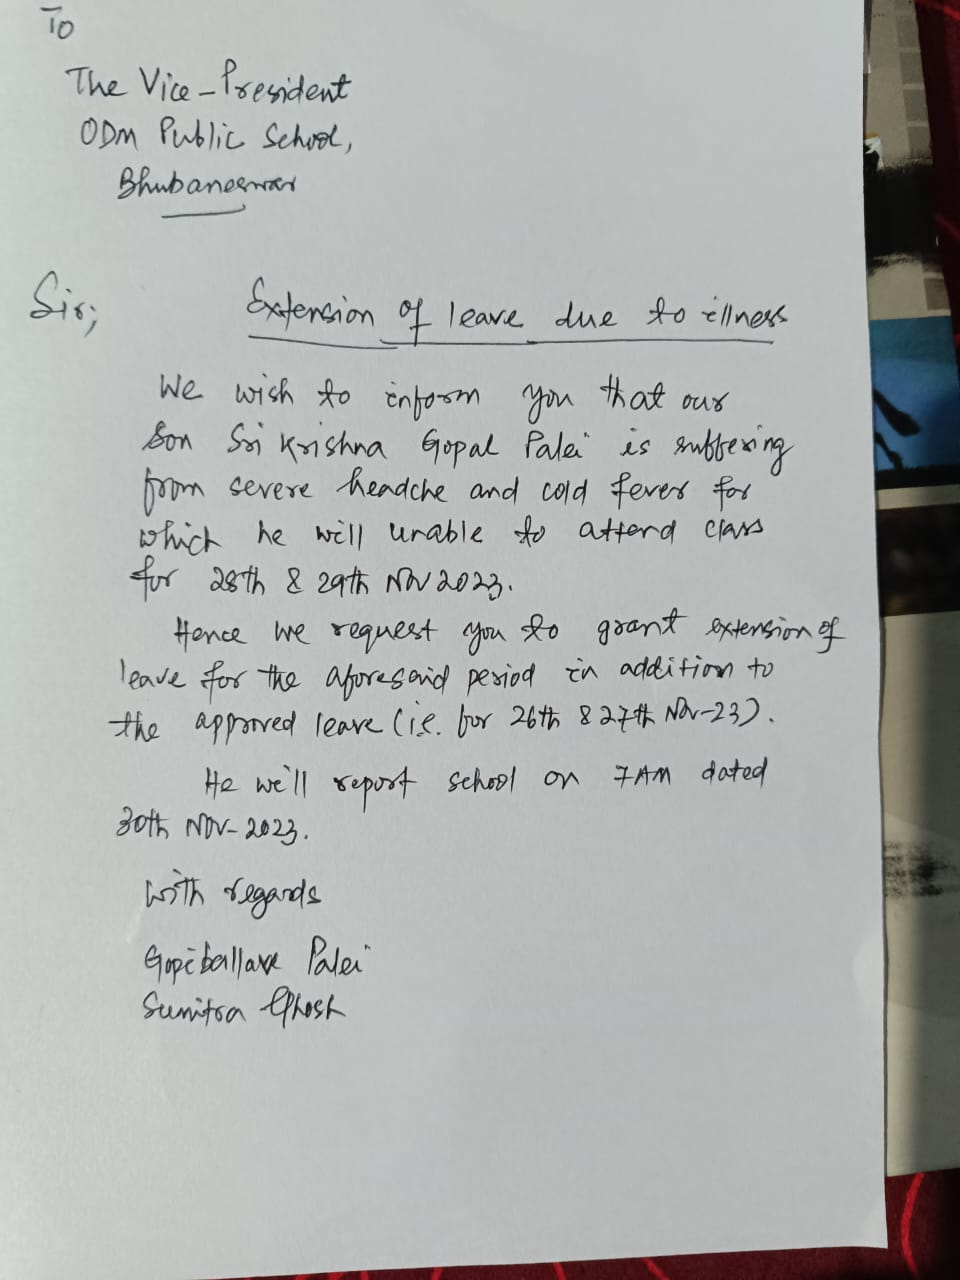 To
The Vice-President
ODM Public School,
Bhubaneswar
Sir;
Extension of leave due to illness
We wish to inform you that our
Son Sri Krishna Gopal Palei is suffering
from severe headche and cold fever for
which he will unable to attend class
for 28th & 29th Nov 2023.
Hence we request you to grant extension of
leave for the aforesaid period in addition to
the approved leave (i.e. for 26th & 27th Nov-23).
He we'll report school on 7AM dated
30th NOV-2023.
With regards
Gopiballave Palei
Sumitra Ghosh